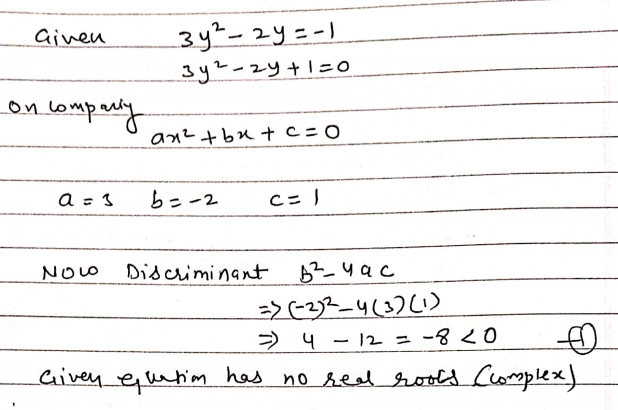 Given 3y² - 2y = -1
3y² - 2y + 1 = 0
on comparing
ax² + bx + c = 0
a = 3 b = -2 c = 1
NOW Discriminant b² - 4ac
=> (-2)² - 4(3)(1)
=> 4 - 12 = -8 < 0 ①
Given equation has no real roots (complex)